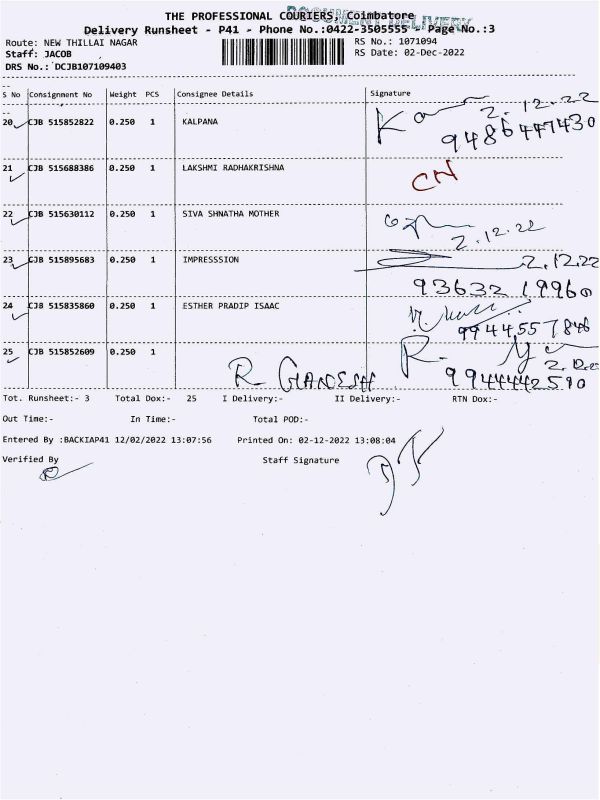 THE PROFESSIONAL COURIERS, Coimbatore
DOCUMENT DELIVERY
Delivery Runsheet - P41 - Phone No.:0422-3505555 - Page No.:3
Route: NEW THILLAI NAGAR
RS No.: 1071094
Staff: JACOB
RS Date: 02-Dec-2022
DRS No.: DCJB107109403
S No Consignment No Weight PCS Consignee Details Signature
20 CJB 515852822 0.250 1 KALPANA 2.12.22
9486447430
21 CJB 515688386 0.250 1 LAKSHMI RADHAKRISHNA CN
22 CJB 515630112 0.250 1 SIVA SHNATHA MOTHER
2.12.22
23 CJB 515895683 0.250 1 IMPRESSSION 2.12.22
93632 19960
24 CJB 515835860 0.250 1 ESTHER PRADIP ISAAC
9944557846
25 CJB 515852609 0.250 1 R.
2.12.22
R GANESH 9944442590
Tot. Runsheet:- 3 Total Dox:- 25 I Delivery:- II Delivery:- RTN Dox:-
Out Time:- In Time:- Total POD:-
Entered By :BACKIAP41 12/02/2022 13:07:56 Printed On: 02-12-2022 13:08:04
Verified By Staff Signature